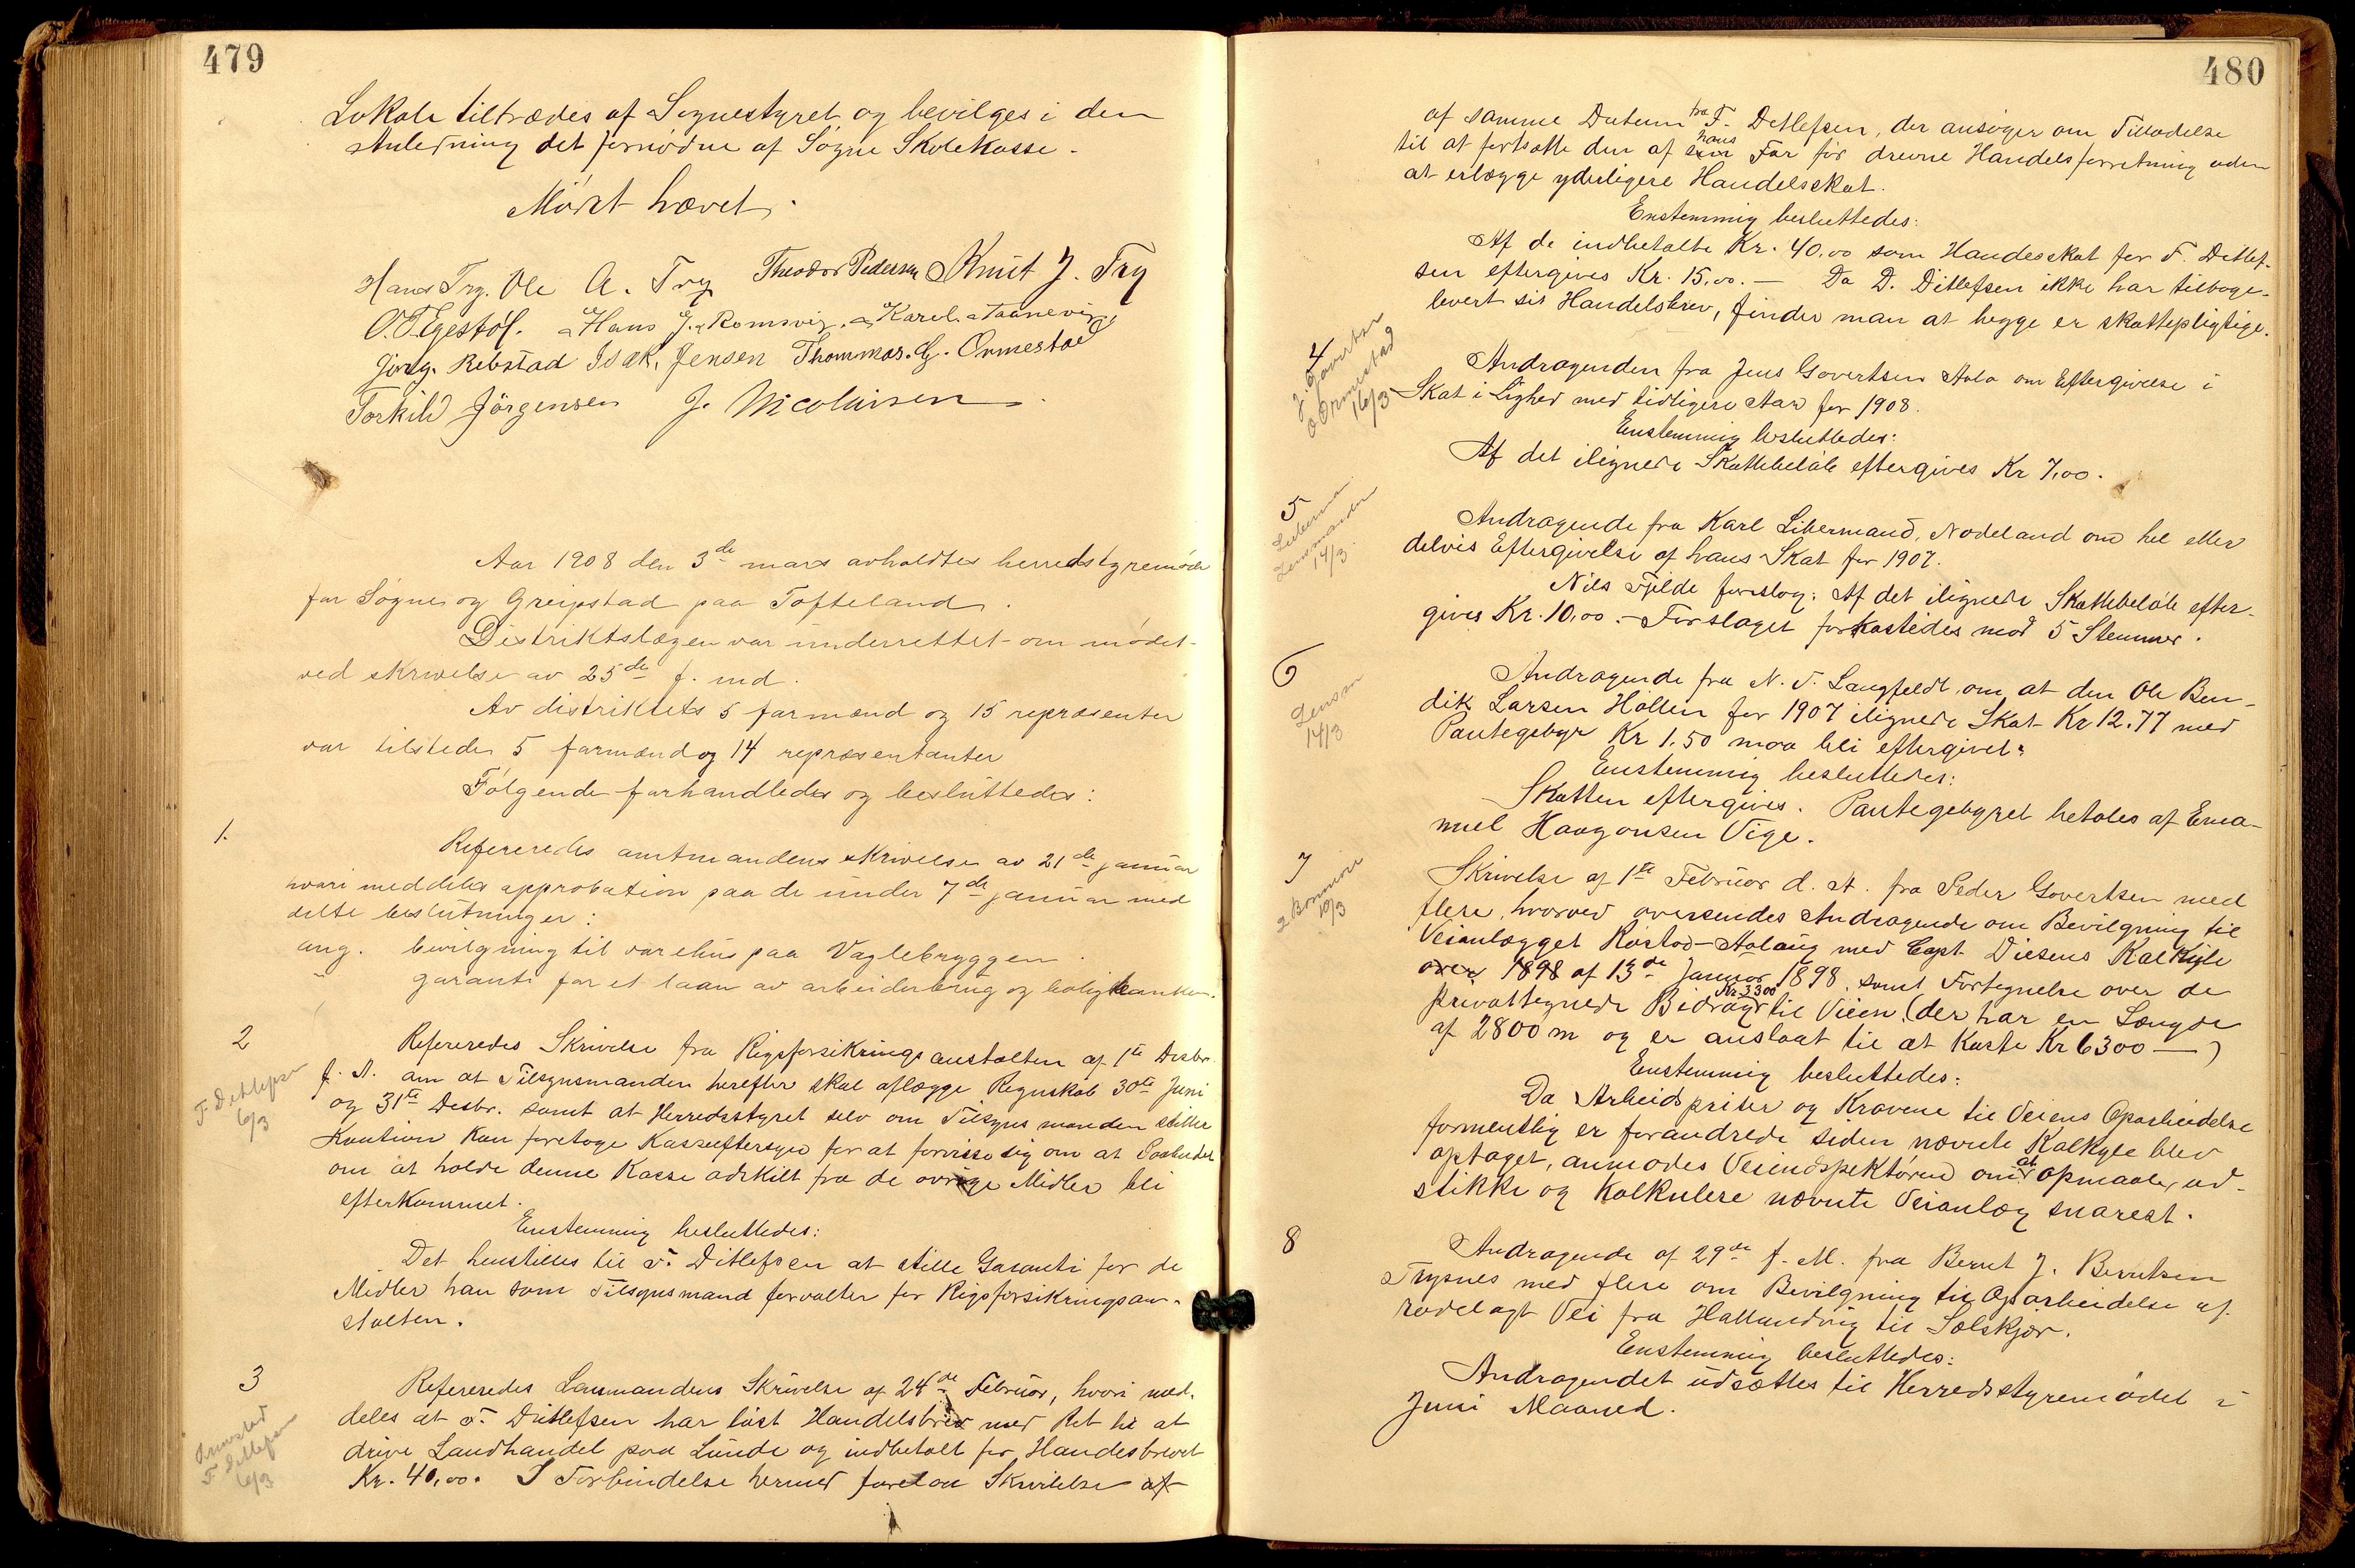 479
Lokale tiltrædes af Sognestyret og bevilges i den
Anledning det fornødne af Søgne Skolekasse.
Mødet hævet.
Hans Try. Ole A. Try Theodor Pedersen Knut J. Try
O. T. Egestøl. Hans J. Romsvig. Karel. Taanevig.
Jørg. Rebstad Isak. Jensen Thommas. G. Ormestad
Torkild Jörgensen J. Nicolaisen
Aar 1908 den 3de mars avholdtes herredstyremøde
for Søgne og Greipstad paa Tofteland.
Distriktslægen var underrettet om mødet
ved skrivelse av 25de f. md.
Av distriktets 5 formænd og 15 repræsenter
var tilstede 5 formænd og 14 repræsentanter
Følgende forhandledes og besluttedes:
1.
Refereredes amtmandens skrivelse av 21de januar
hvori meddeles approbation paa de under 7de januar med
delte beslutninger:
ang. bevilgning til varehus paa Vaglebryggen.
" garanti for et laan av arbeiderbrug og boligbanken.
2
F. Ditlefsen
6/3
Refereredes Skrivelse fra Rigsforsikringsanstalten af 1te Desbr.
f. A. om at Tilsynsmanden herefter skal aflægge Regnskab 30te Juni
og 31te Desbr. samt at Herredsstyret selv om Tilsynsmanden stiller
Kaution kan foretage Kasseeftersyn for at forvisse sig om at Paabudet
om at holde denne Kasse adskilt fra de øvrige Midler bli
efterkommet.
Enstemmig besluttedes:
Det henstilles til F. Ditlefsen at stille Garanti for de
Midler han som Tilsynsmand forvalter for Rigsforsikringsan-
stalten.
3
Ormestad
F. Ditlefsen
6/3
Refereredes Lensmandens Skrivelse af 24de Februar, hvori med-
deles at F. Ditlefsen har løst Handelsbrev med Ret til at
drive Landhandel paa Lunde og indbetalt for Handesbrevet
Kr. 40,00. I Forbindelse hermed forelaa Skrivelse af
480
af samme Datum fra F. Detlefsen, der ansøger om Tilladelse
til at fortsætte den af hans Far før drevne Handelsforretning uden
at erlægge yderligere Handelsskat.
Enstemmig besluttedes:
Af de indbetalte Kr. 40,00 som Handesskat for F. Detlef-
sen eftergives Kr. 15,00. — Da D. Ditlefsen ikke har tilbage-
levert sit Handelsbrev, finder man at begge er skattepligtige.
4
J. Govertsen
O Ormestad
16/3
Andragenden fra Jens Govertsen Aala om Eftergivelse i
Skat i Lighed med tidligere Aar for 1908.
Enstemmig besluttedes:
Af det ilignede Skattebeløb eftergives Kr 7,00.
5
Liberma
Lensmanden
14/3.
Andragende fra Karl Libermand, Nodeland om hel eller
delvis Eftergivelse af hans Skat for 1907.
Nils Fjelde foreslog: Af det ilignede Skattebeløb efter-
gives Kr. 10,00. — Forslaget forkastedes mod 5 Stemmer.
6
Lensm
14/3
Andragende fra N. T. Langfeldt om at den Ole Ben-
dik Larsen Høllen for 1907 ilignede Skat Kr 12.77 med
Pantegebyr Kr 1.50 maa bli eftergivet.
Enstemmig besluttedes:
Skatten eftergives. Pantegebyret betales af Ema-
nuel Haagonsen Vige.
7
10/3
Skrivelse af 1te Februar d. A. fra Peder Govertsen med
flere, hvorved oversendes Andragende om Bevilgning til
Veianlægget Røstad-Aalaug med Capt. Diesens Kalkyle
over 1898 af 13de Januar 1898, samt Fortegnelse over de
privattegnede Bidrag Kr 3300 til Veien. (der har en Længde
af 2800 m og er anslaat til at Koste Kr 6300 —)
Enstemmig besluttedes:
Da Arbeidspriser og Kravene til Veiens Oparbeidelse
formentlig er forandrede siden nævnte Kalkyle blev
optaget, anmodes Veiindspektøren om at opmaale, ud-
stikke og Kalkulere nævnte Veianlæg snarest.
8
Andragende af 29de f. M. fra Bernt J. Berntsen
Trysnes med flere om Bevilgning til Oparbeidelse af
rodelagt Vei fra Hallandvig til Salskjær.
Enstemmig besluttedes:
Andragendet udsættes til Herredsstyremødet i
Juni Maaned.